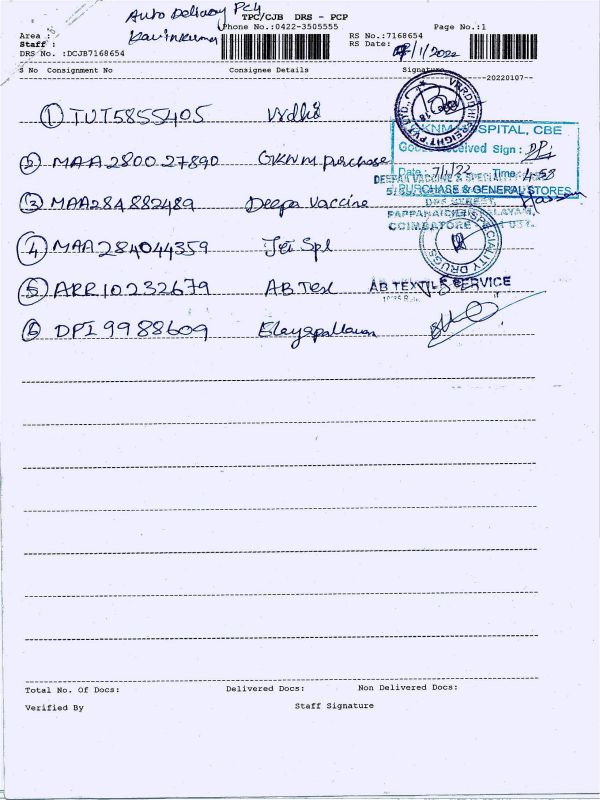 Auto Delivery PCY
TPC/CJB DRS - PCP
Kavinkumar
Phone No.:0422-3505555
Page No.:1
Area :
RS No.:7168654
Staff :
RS Date: 07/1/2022
DRS No. :DCJB7168654
S No Consignment No Consignee Details Signature
20220107
① TUT5855405
② MAA280027890 GKNM purchase
GKNM HOSPITAL, CBE
Goods Received Sign :
Date : 7/1/22 Time : 4.58
PURCHASE & GENERAL STORES
③ MAA284882489 Deepa Vaccine
DEEPAN VACCINE & SPECIALITY
PAPPANAICKENPALAYAM,
COIMBATORE
④ MAA284044359 Jei Spl
SPECIALITY DRUGS
⑤ ARR10232679 AB Tex
AB TEXTILE SERVICE
⑥ DPI9988609 Elayapallavan
Total No. Of Docs: Delivered Docs: Non Delivered Docs:
Verified By Staff Signature